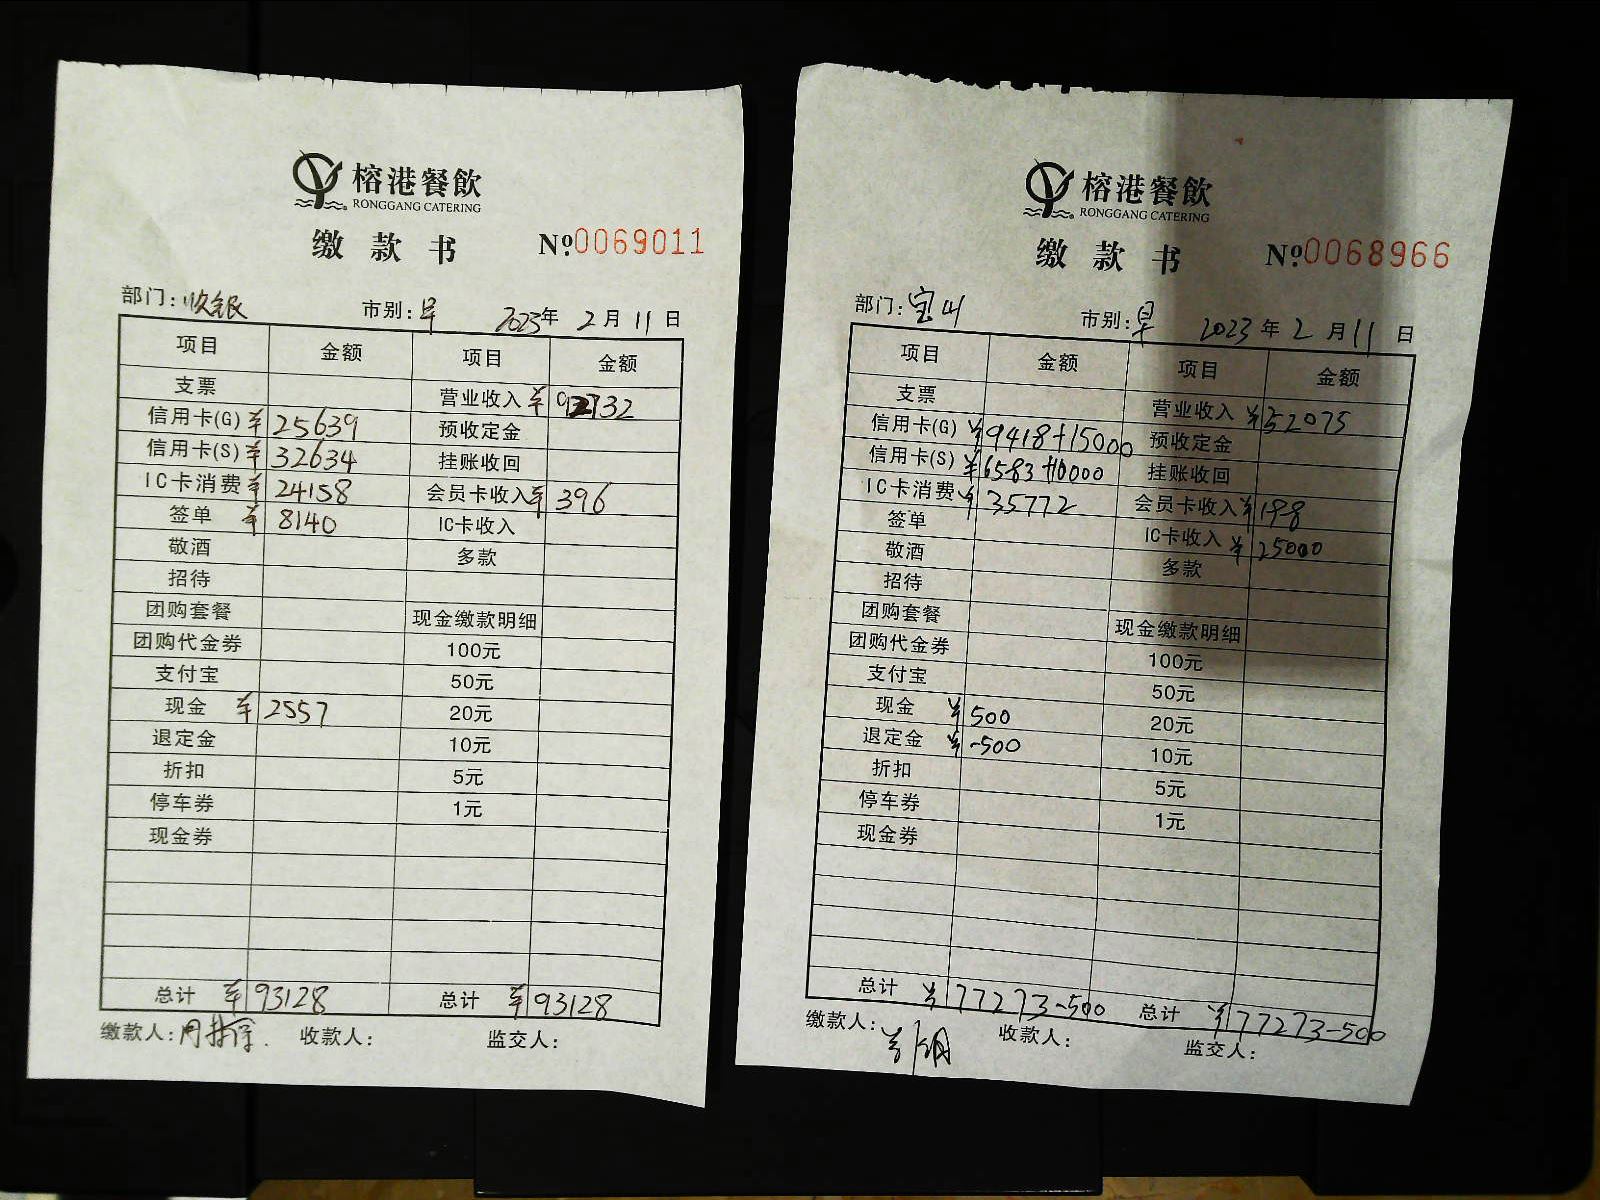 榕港餐飲
RONGGANG CATERING
缴款书 №0069011
部门: 收银 市别: 早 2023年 2月 11日
项目 金额 项目 金额
支票 营业收入 ¥92732
信用卡(G) ¥25639 预收定金
信用卡(S) ¥32634 挂账收回
IC卡消费 ¥24158 会员卡收入 ¥396
签单 ¥8140 IC卡收入
敬酒 多款
招待
团购套餐 现金缴款明细
团购代金券 100元
支付宝 50元
现金 ¥2557 20元
退定金 10元
折扣 5元
停车券 1元
现金券
总计 ¥93128 总计 ¥93128
缴款人: 收款人: 监交人:
榕港餐飲
RONGGANG CATERING
缴款书 №0068966
部门: 宝山 市别: 早 2023年 2月 11日
项目 金额 项目 金额
支票 营业收入 ¥52075
信用卡(G) ¥9418+15000 预收定金
信用卡(S) ¥6583+10000 挂账收回
IC卡消费 ¥35772 会员卡收入 ¥198
签单 IC卡收入 ¥25000
敬酒 多款
招待
团购套餐 现金缴款明细
团购代金券 100元
支付宝 50元
现金 ¥500 20元
退定金 ¥-500 10元
折扣 5元
停车券 1元
现金券
总计 ¥77273-500 总计 ¥77273-500
缴款人: 收款人: 监交人: